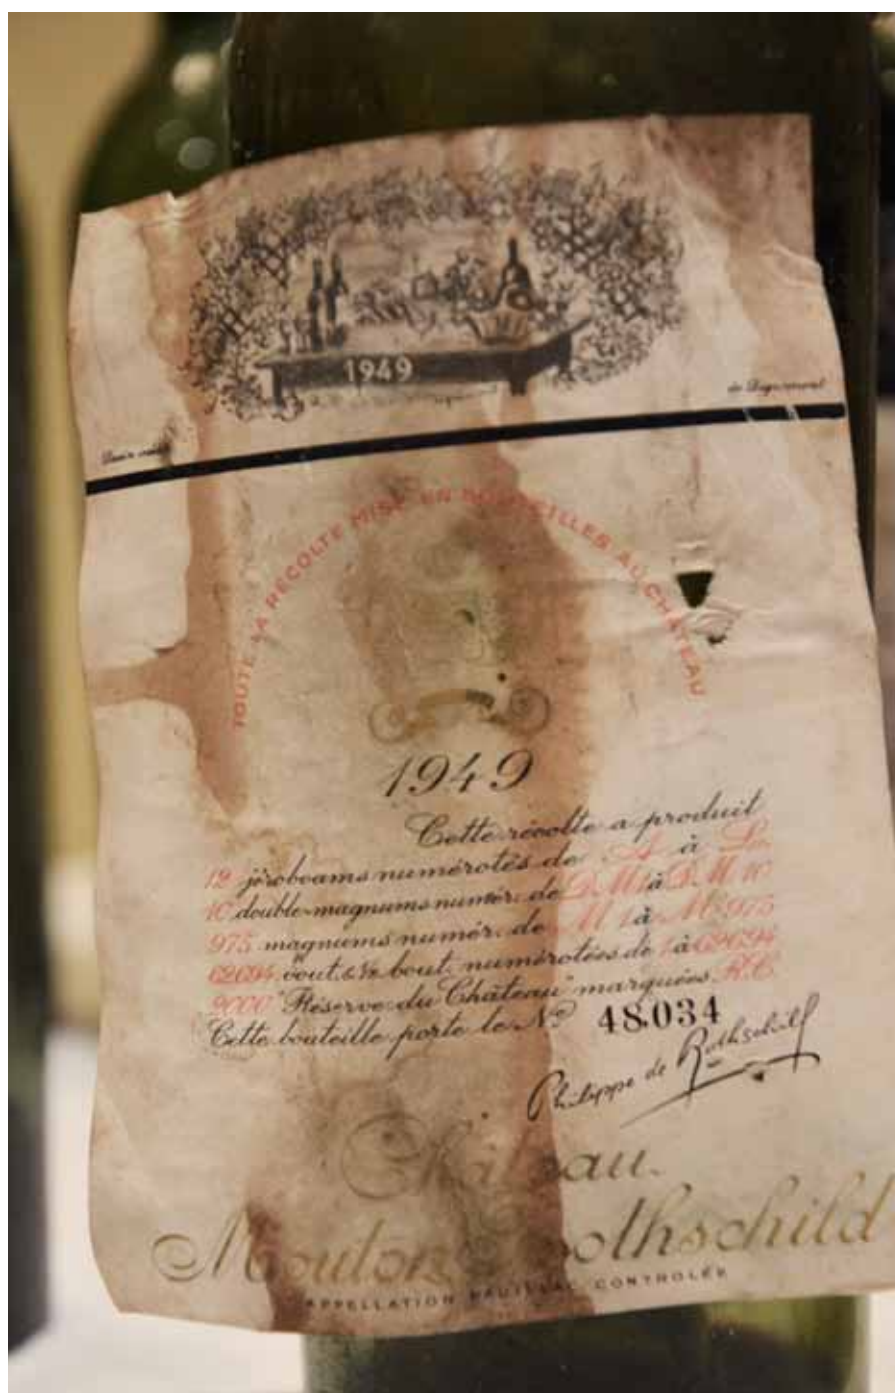 1949
de Dignimont
TOUTE LA RÉCOLTE MISE EN BOUTEILLES AU CHÂTEAU
1949
Cette récolte a produit
12 jéroboams numérotés de A à
10 double-magnums numér. de D.M1 à D.M 10
975 magnums numér. de M 1 à M 975
62694 bout. & ½ bout. numérotées de 1 à 62694
2000 "Réserve du Château" marquées R.C.
Cette bouteille porte le Nº 48.034
Philippe de Rothschild
Château
Mouton Rothschild
APPELLATION PAUILLAC CONTROLÉE